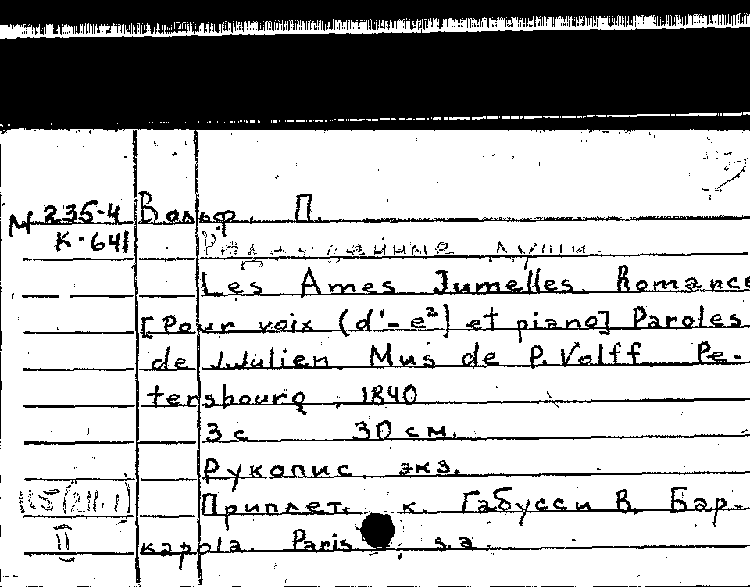 М 235-4 Вольф. П.
К-641 души.
Les Ames Jumelles. Romance
[Pour voix (d'-e²) et piano] Paroles
de J. Julien. Mus de P. Volff Pe-
tersbourg, 1840
3 с 30 см.
Рукопис. экз.
Приплет. к. Габусси В. Бар-
II карола. Paris, s.a.